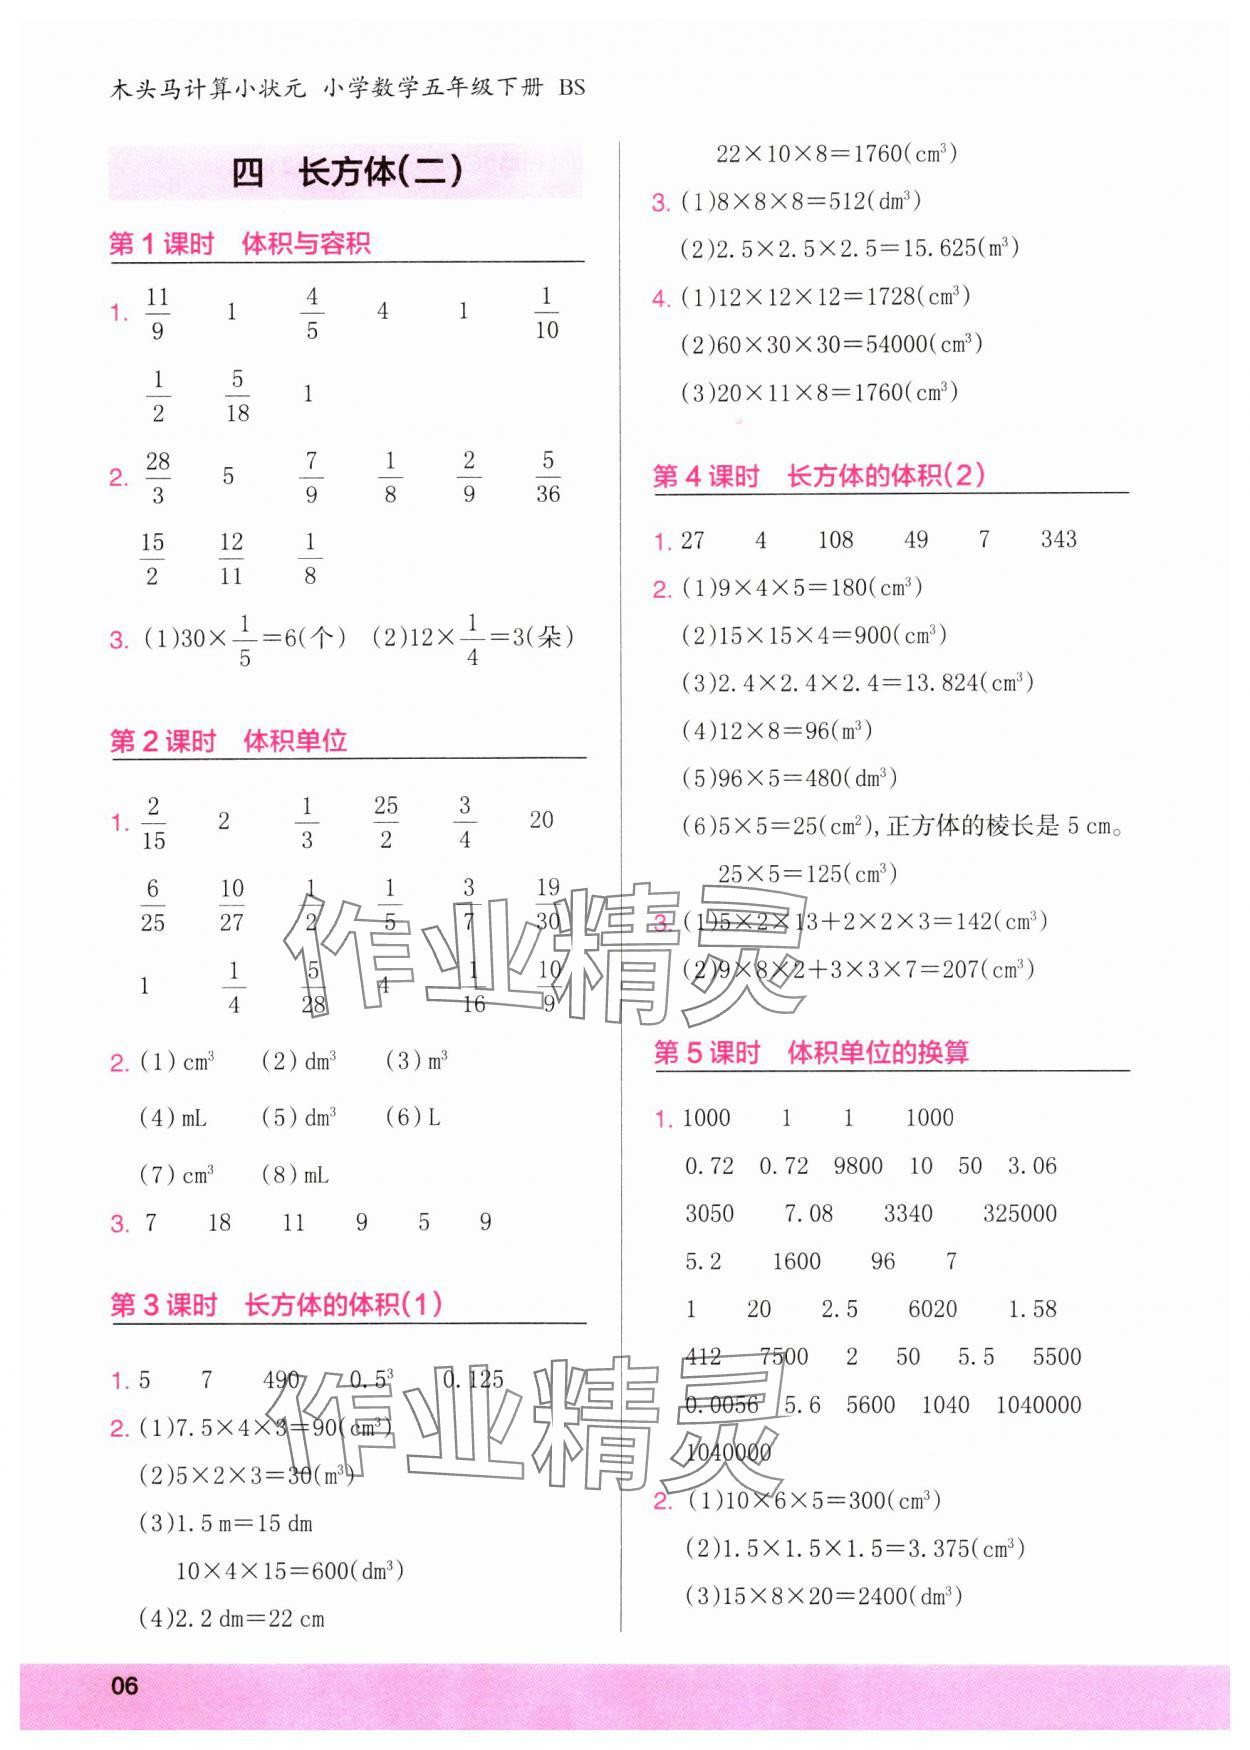 木头马计算小状元 小学数学五年级下册 BS
四 长方体(二)
第1课时 体积与容积
1. 11/9 1 4/5 4 1 1/10
1/2 5/18 1
2. 28/3 5 7/9 1/8 2/9 5/36
15/2 12/11 1/8
3. (1)30×1/5=6(个) (2)12×1/4=3(朵)
第2课时 体积单位
1. 2/15 2 1/3 25/2 3/4 20
6/25 10/27 1/2 1/5 3/7 19/30
1 1/4 5/28 4 1/16 10/9
2. (1)cm³ (2)dm³ (3)m³
(4)mL (5)dm³ (6)L
(7)cm³ (8)mL
3. 7 18 11 9 5 9
第3课时 长方体的体积(1)
1. 5 7 490 0.5³ 0.125
2. (1)7.5×4×3=90(cm³)
(2)5×2×3=30(m³)
(3)1.5 m=15 dm
10×4×15=600(dm³)
(4)2.2 dm=22 cm
22×10×8=1760(cm³)
3. (1)8×8×8=512(dm³)
(2)2.5×2.5×2.5=15.625(m³)
4. (1)12×12×12=1728(cm³)
(2)60×30×30=54000(cm³)
(3)20×11×8=1760(cm³)
第4课时 长方体的体积(2)
1. 27 4 108 49 7 343
2. (1)9×4×5=180(cm³)
(2)15×15×4=900(cm³)
(3)2.4×2.4×2.4=13.824(cm³)
(4)12×8=96(m³)
(5)96×5=480(dm³)
(6)5×5=25(cm²),正方体的棱长是5 cm。
25×5=125(cm³)
3. (1)5×2×13+2×2×3=142(cm³)
(2)9×8×2+3×3×7=207(cm³)
第5课时 体积单位的换算
1. 1000 1 1 1000
0.72 0.72 9800 10 50 3.06
3050 7.08 3340 325000
5.2 1600 96 7
1 20 2.5 6020 1.58
412 7500 2 50 5.5 5500
0.0056 5.6 5600 1040 1040000
1040000
2. (1)10×6×5=300(cm³)
(2)1.5×1.5×1.5=3.375(cm³)
(3)15×8×20=2400(dm³)
作业精灵
作业精灵
06